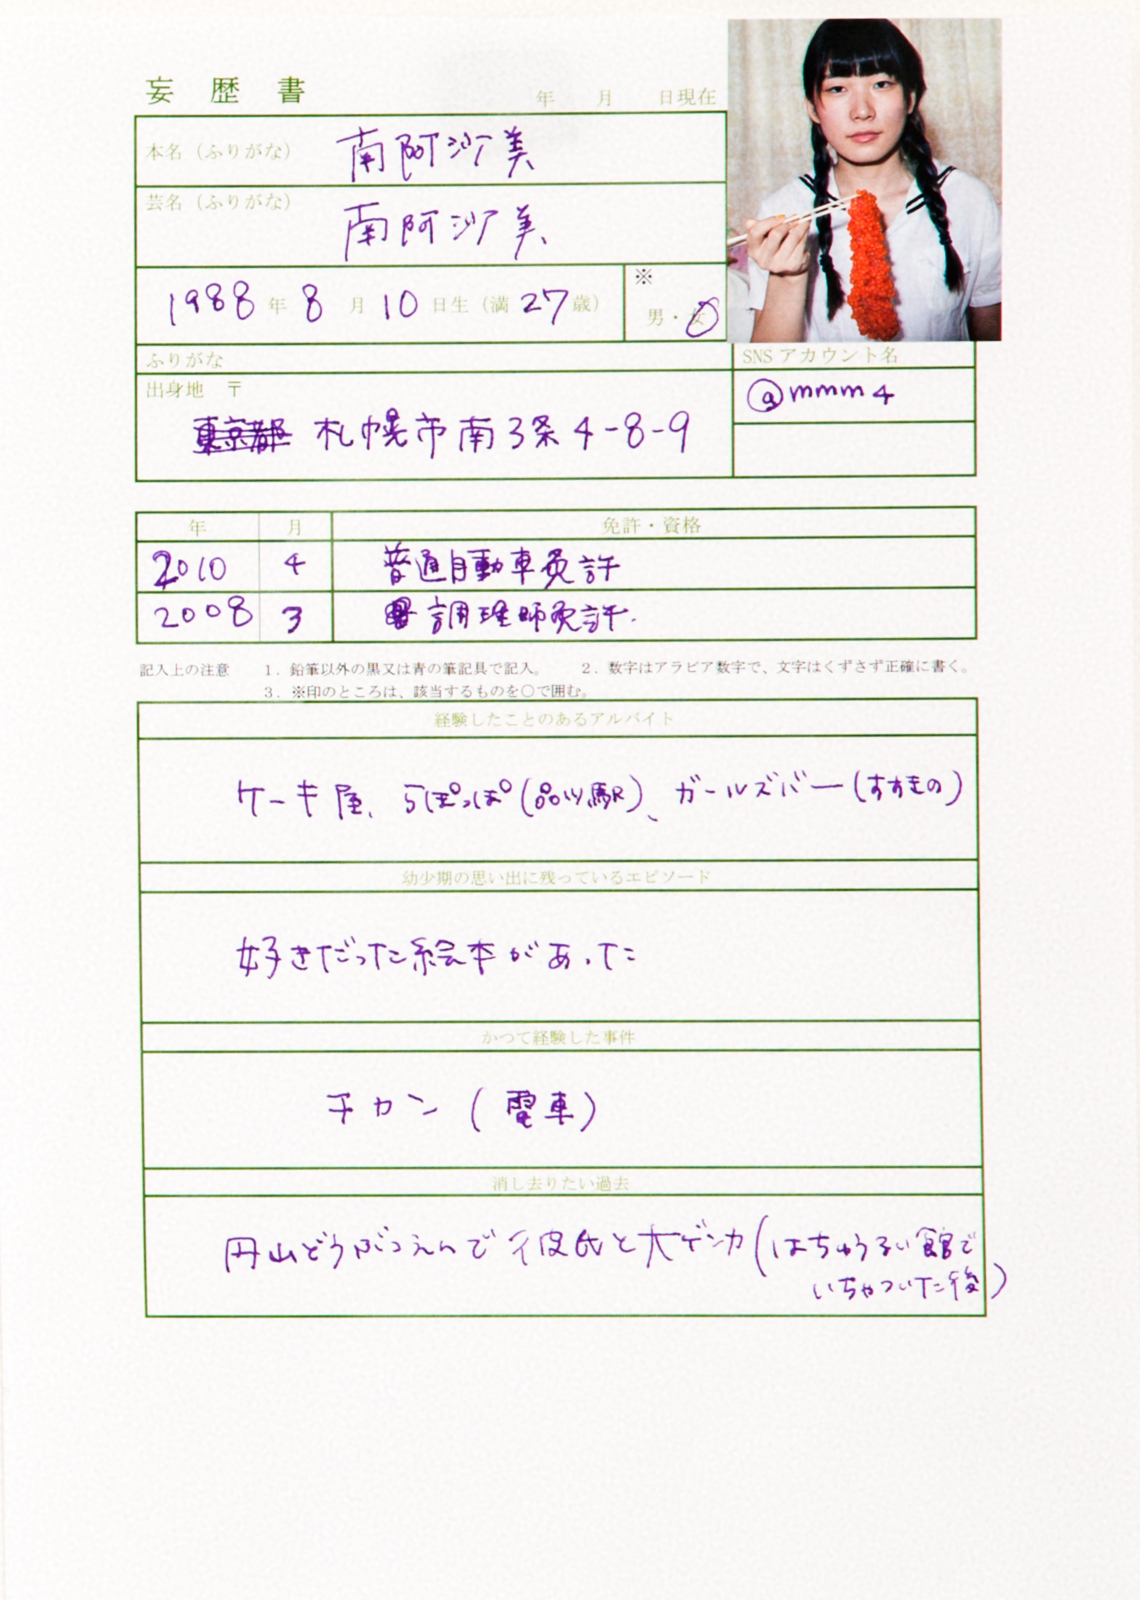 妄歴書
年 月 日現在
本名（ふりがな） 南阿沙美
芸名（ふりがな） 南阿沙美
1988年8月10日生（満27歳）
※
男・女
ふりがな
SNSアカウント名
出身地 〒
@mmm4
東京都 札幌市南3条4-8-9
年 月 免許・資格
2010 4 普通自動車免許
2008 3 調理師免許.
記入上の注意 1．鉛筆以外の黒又は青の筆記具で記入。 2．数字はアラビア数字で、文字はくずさず正確に書く。
3．※印のところは、該当するものを○で囲む。
経験したことのあるアルバイト
ケーキ屋、らぽっぽ(品川駅)、ガールズバー(すすきの)
幼少期の思い出に残っているエピソード
好きだった絵本があった
かつて経験した事件
チカン(電車)
消し去りたい過去
円山どうぶつえんで彼氏と大ゲンカ(はちゅうるい館で
いちゃついた後)